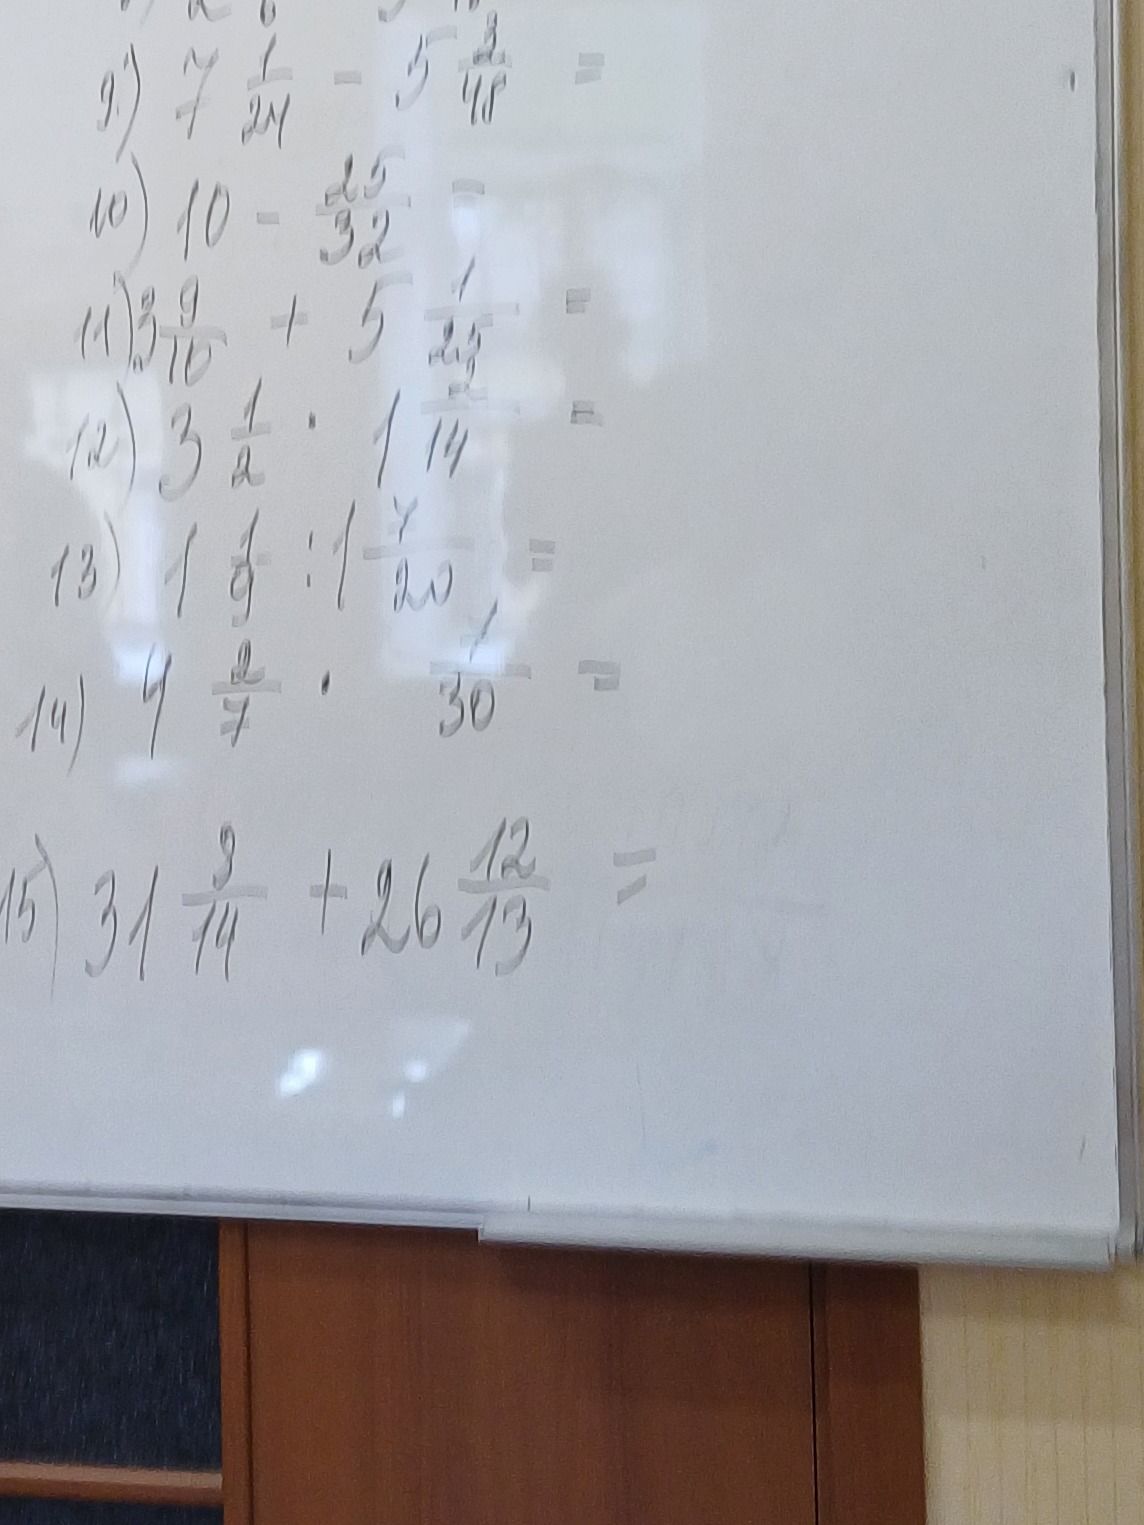 9) 7 1/24 - 5 3/48 =
10) 10 - 25/32 =
11) 3 9/10 + 5 1/25 =
12) 3 1/2 · 1 2/14 =
13) 1 1/9 : 1 7/20 =
14) 4 2/7 · 7/30 =
15) 31 9/14 + 26 12/13 =